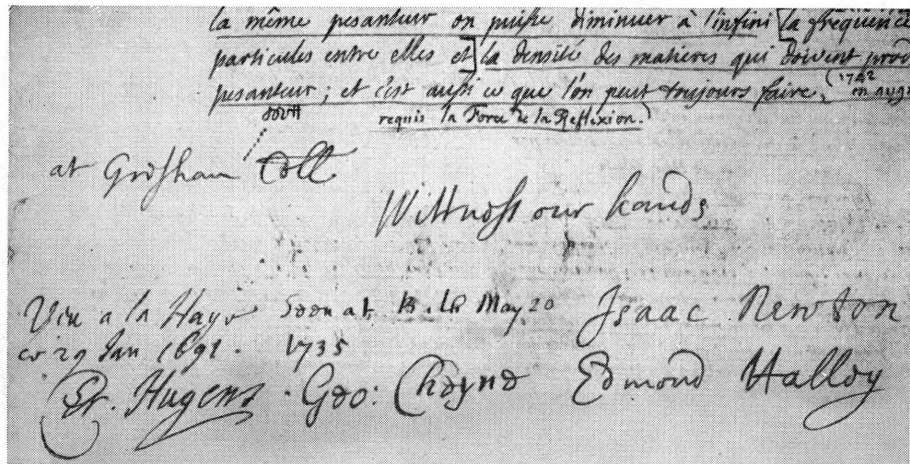 la même pesanteur on puisse diminuer à l'infini [la fréquence
particules entre elles et] la densité des matieres qui doivent prod
pesanteur; et c'est aussi ce que l'on peut toujours faire. (1742
requis la Force de la Reflexion.)
at Gresham Coll
Wittness our hands
Veu a la Haye
ce 29 Jan 1691.
Seen at May 20
1735
Isaac Newton
Hugens. Geo: Cheyne Edmond Halley